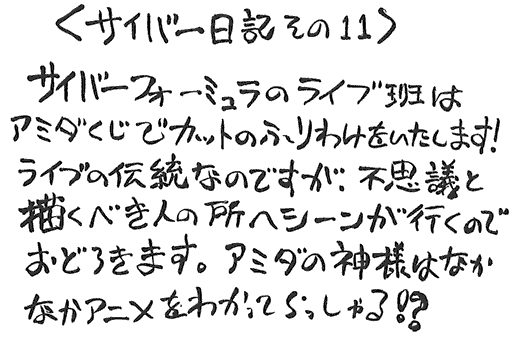 〈サイバー日記その11〉
サイバーフォーミュラのライブ班は
アミダくじでカットのふりわけをいたします!
ライブの伝統なのですが、不思議と
描くべき人の所へシーンが行くので
おどろきます。アミダの神様はなか
なかアニメをわかってらっしゃる!?